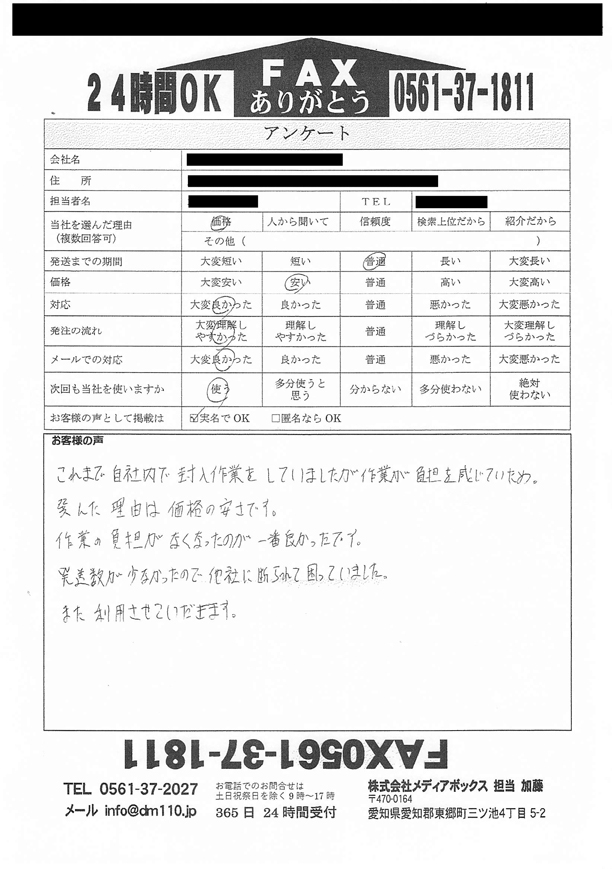 FAX
ありがとう
24時間OK
0561-37-1811
アンケート
会社名
住 所
担当者名 TEL
当社を選んだ理由
(複数回答可)
価格 人から聞いて 信頼度 検索上位だから 紹介だから
その他( )
発送までの期間 大変短い 短い 普通 長い 大変長い
価格 大変安い 安い 普通 高い 大変高い
対応 大変良かった 良かった 普通 悪かった 大変悪かった
発注の流れ 大変理解しやすかった 理解しやすかった 普通 理解しづらかった 大変理解しづらかった
メールでの対応 大変良かった 良かった 普通 悪かった 大変悪かった
次回も当社を使いますか 使う 多分使うと思う 分からない 多分使わない 絶対使わない
お客様の声として掲載は ☑実名でOK □匿名ならOK
お客様の声
これまで自社内で封入作業をしていましたが作業が負担を感じていため。
選んだ理由は価格の安さです。
作業の負担がなくなったのが一番良かったです。
発送数が少なかったので他社に断られて困っていました。
また利用させていだきます。
FAX0561-37-1811
TEL 0561-37-2027
メール info@dm110.jp
お電話でのお問合せは
土日祝祭日を除く9時～17時
365日 24時間受付
株式会社メディアボックス 担当 加藤
〒470-0164
愛知県愛知郡東郷町三ツ池4丁目5-2